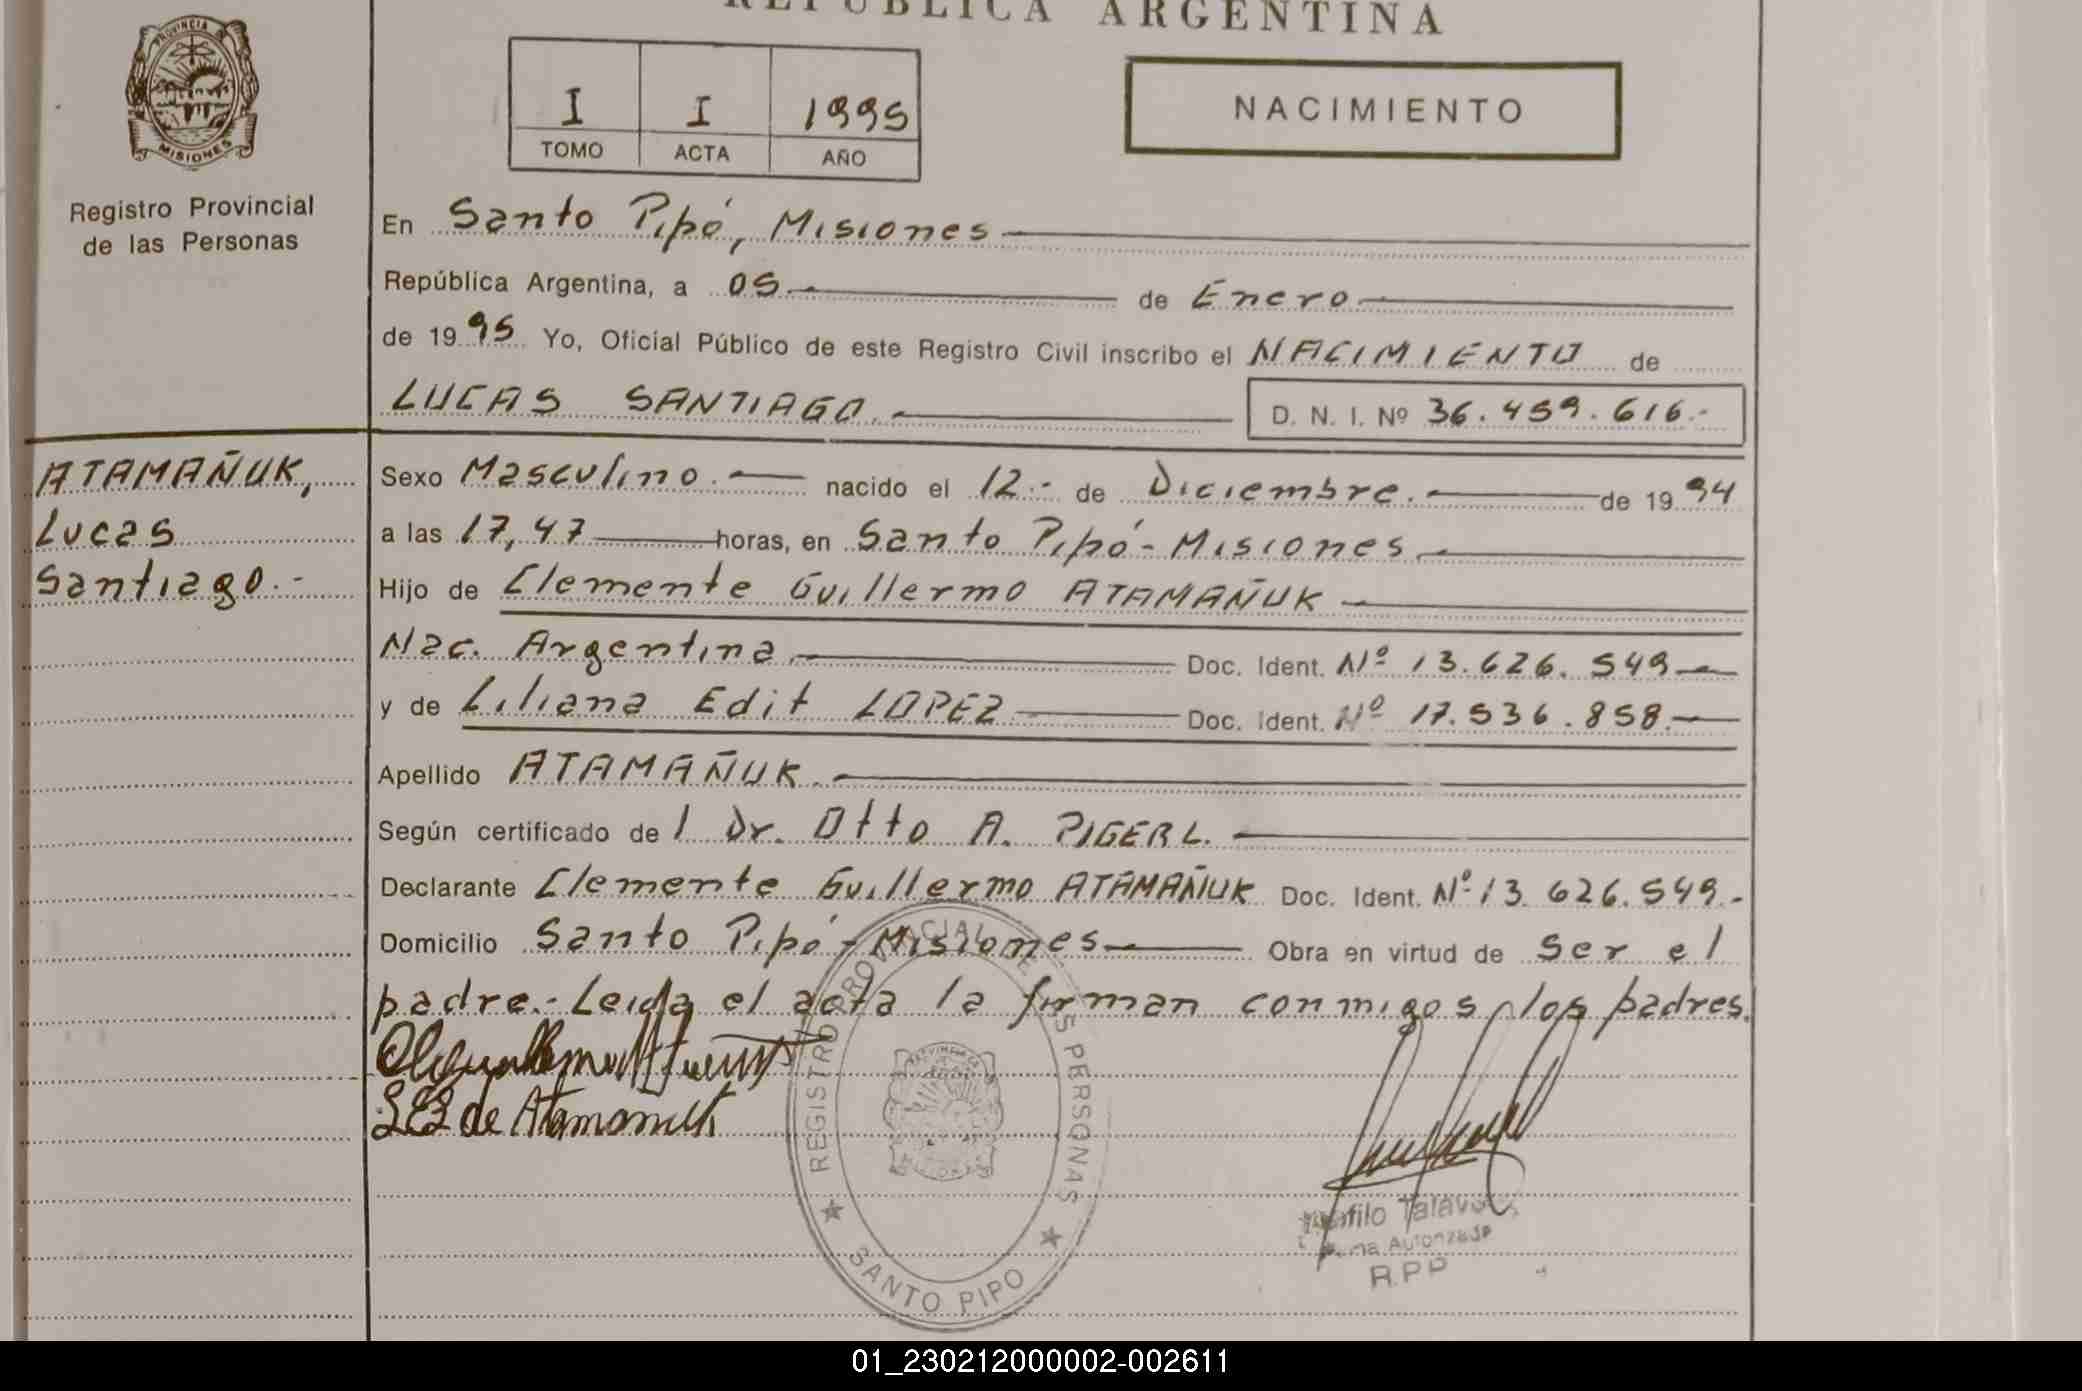 REPUBLICA ARGENTINA
PROVINCIA DE
MISIONES
Registro Provincial
de las Personas
I I 1995
TOMO ACTA AÑO
NACIMIENTO
En Santo Pipó, Misiones
República Argentina, a 05 de Enero
de 1995 Yo, Oficial Público de este Registro Civil inscribo el NACIMIENTO de
LUCAS SANTIAGO.
D. N. I. Nº 36.459.616.-
ATAMAÑUK,
Lucas
Santiago.-
Sexo Masculino. nacido el 12.- de Diciembre. de 1994
a las 17,47 horas, en Santo Pipó - Misiones.
Hijo de Clemente Guillermo ATAMAÑUK
Nac. Argentina. Doc. Ident. Nº 13.626.549
y de Liliana Edit LOPEZ Doc. Ident. Nº 17.536.858.
Apellido ATAMAÑUK.
Según certificado del Dr. Otto A. PIGERL.
Declarante Clemente Guillermo ATAMAÑUK Doc. Ident. Nº 13.626.549.-
Domicilio Santo Pipó - Misiones Obra en virtud de ser el
padre.- Leida el acta la firman conmigos los padres.
de Atamanuk
REGISTRO PROVINCIAL DE LAS PERSONAS
SANTO PIPO
Autorizada
R.P.P
01_230212000002-002611